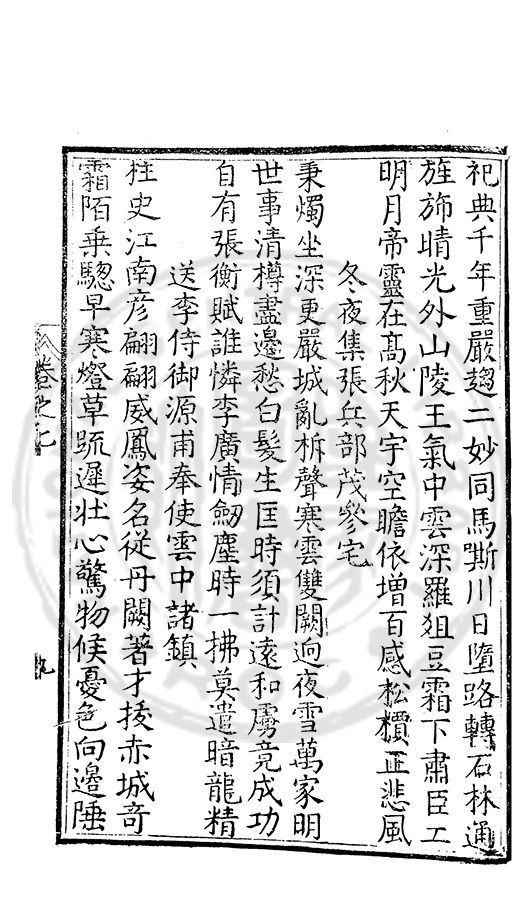 祀典千年重嚴趨二妙同馬嘶川日墮路轉石林通
旌斾晴光外山陵王氣中雲深羅俎豆霜下肅臣工
明月帝靈在高秋天宇空瞻依增百感松檟正悲風
冬夜集張兵部茂參宅
秉燭坐深更嚴城亂柝聲寒雲雙闕逈夜雪萬家明
世事清樽盡邊愁白髪生匡時須計遠和虜竟成功
自有張衡賦誰憐李廣情劒塵時一拂莫遣暗龍精
送李侍御源甫奉使雲中諸鎮
柱史江南彦翩翩威鳳姿名從丹闕著才掞赤城奇
霜陌乗驄早寒燈草疏遲壯心驚物候憂色向邊陲
卷之七
九